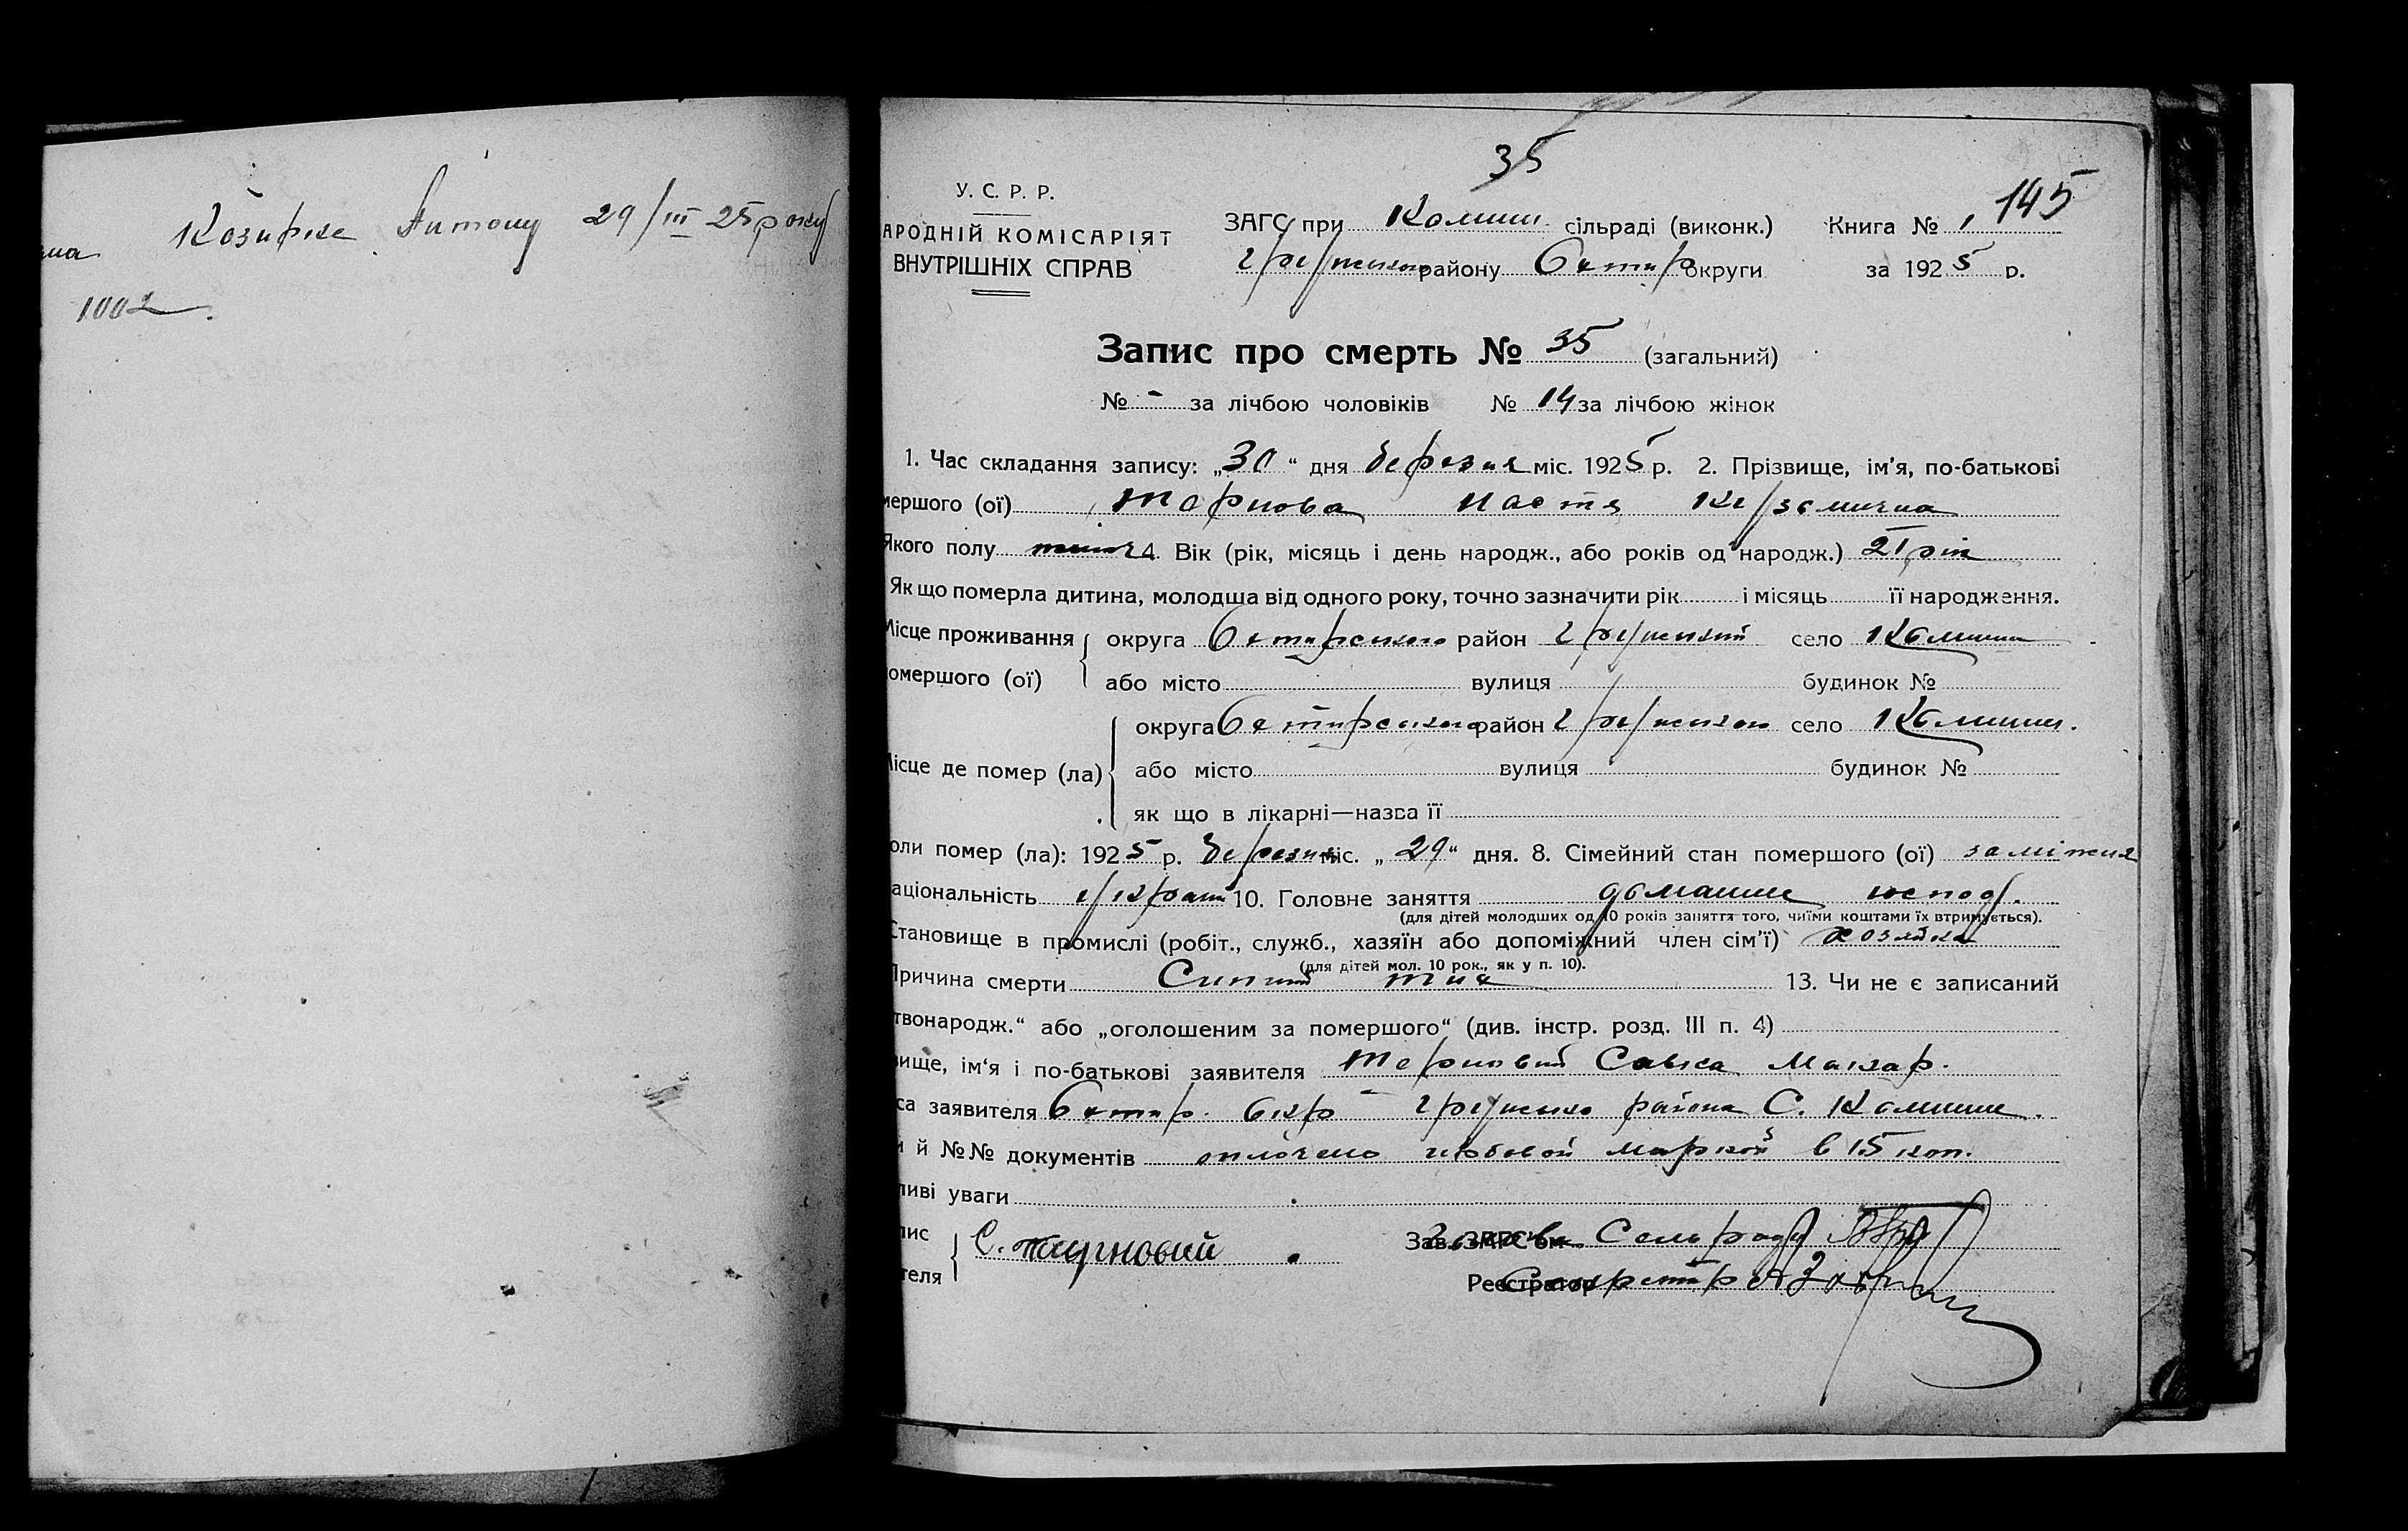 Козирке Антону 29/III 25 року
1002
35
145
У. С. Р. Р.
АРОДНІЙ КОМІСАРІЯТ
ВНУТРІШНІХ СПРАВ
ЗАГС при Комиш. сільраді (виконк.) Книга № 1
Грунського району Охтир округи за 1925 р.
Запис про смерть № 35 (загальний)
№ - за лічбою чоловіків № 14 за лічбою жінок
1. Час складання запису: „30“ дня березня міс. 1925 р. 2. Прізвище, ім'я, по-батькові
мершого (ої) Тернова Настя Кузьмична
Якого полу жіноч 4. Вік (рік, місяць і день народж., або років од народж.) 21 рік
Як що померла дитина, молодша від одного року, точно зазначити рік і місяць її народження.
Місце проживання округа Охтирського район Грунський село Комиші
омершого (ої) або місто вулиця будинок №
округа Охтирського район Грунського село Комиши.
Місце де помер (ла) або місто вулиця будинок №
як що в лікарні—назва її
оли помер (ла): 1925 р. березня міс. „29“ дня. 8. Сімейний стан помершого (ої) заміжня
аціональність украін 10. Головне заняття домашнє господ.
(для дітей молодших од 10 років заняття того, чиїми коштами їх втримується).
Становище в промислі (робіт., служб., хазяїн або допоміжний член сім'ї) хозяйка
(для дітей мол. 10 рок., як у п. 10).
Причина смерти Сипний тиф 13. Чи не є записаний
твонародж.“ або „оголошеним за помершого“ (див. інстр. розд. III п. 4)
вище, ім'я і по-батькові заявителя Терновий Савка Макар.
са заявителя Охтир. окр Грунсько района С. Комиши.
и й №№ документів оплочено гербовой маркой в 15 коп.
ливі уваги
пис С. Терновий Зав. ЗАГС'ом Голова Сельради
теля Реєстратор Секретар